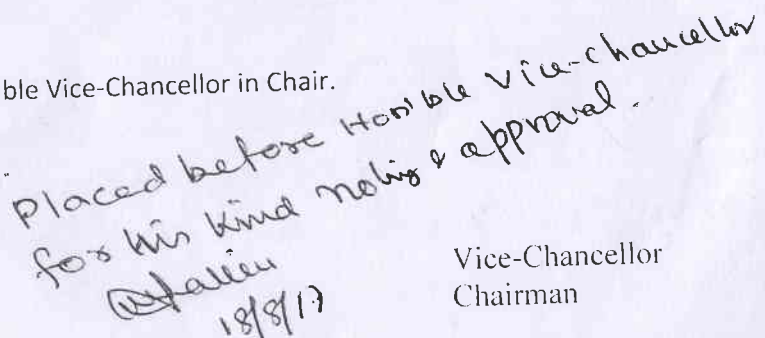 ble Vice-Chancellor in Chair.
Placed before Hon'ble Vice-Chancellor
for his kind & approval.
18/8/17
Vice-Chancellor
Chairman